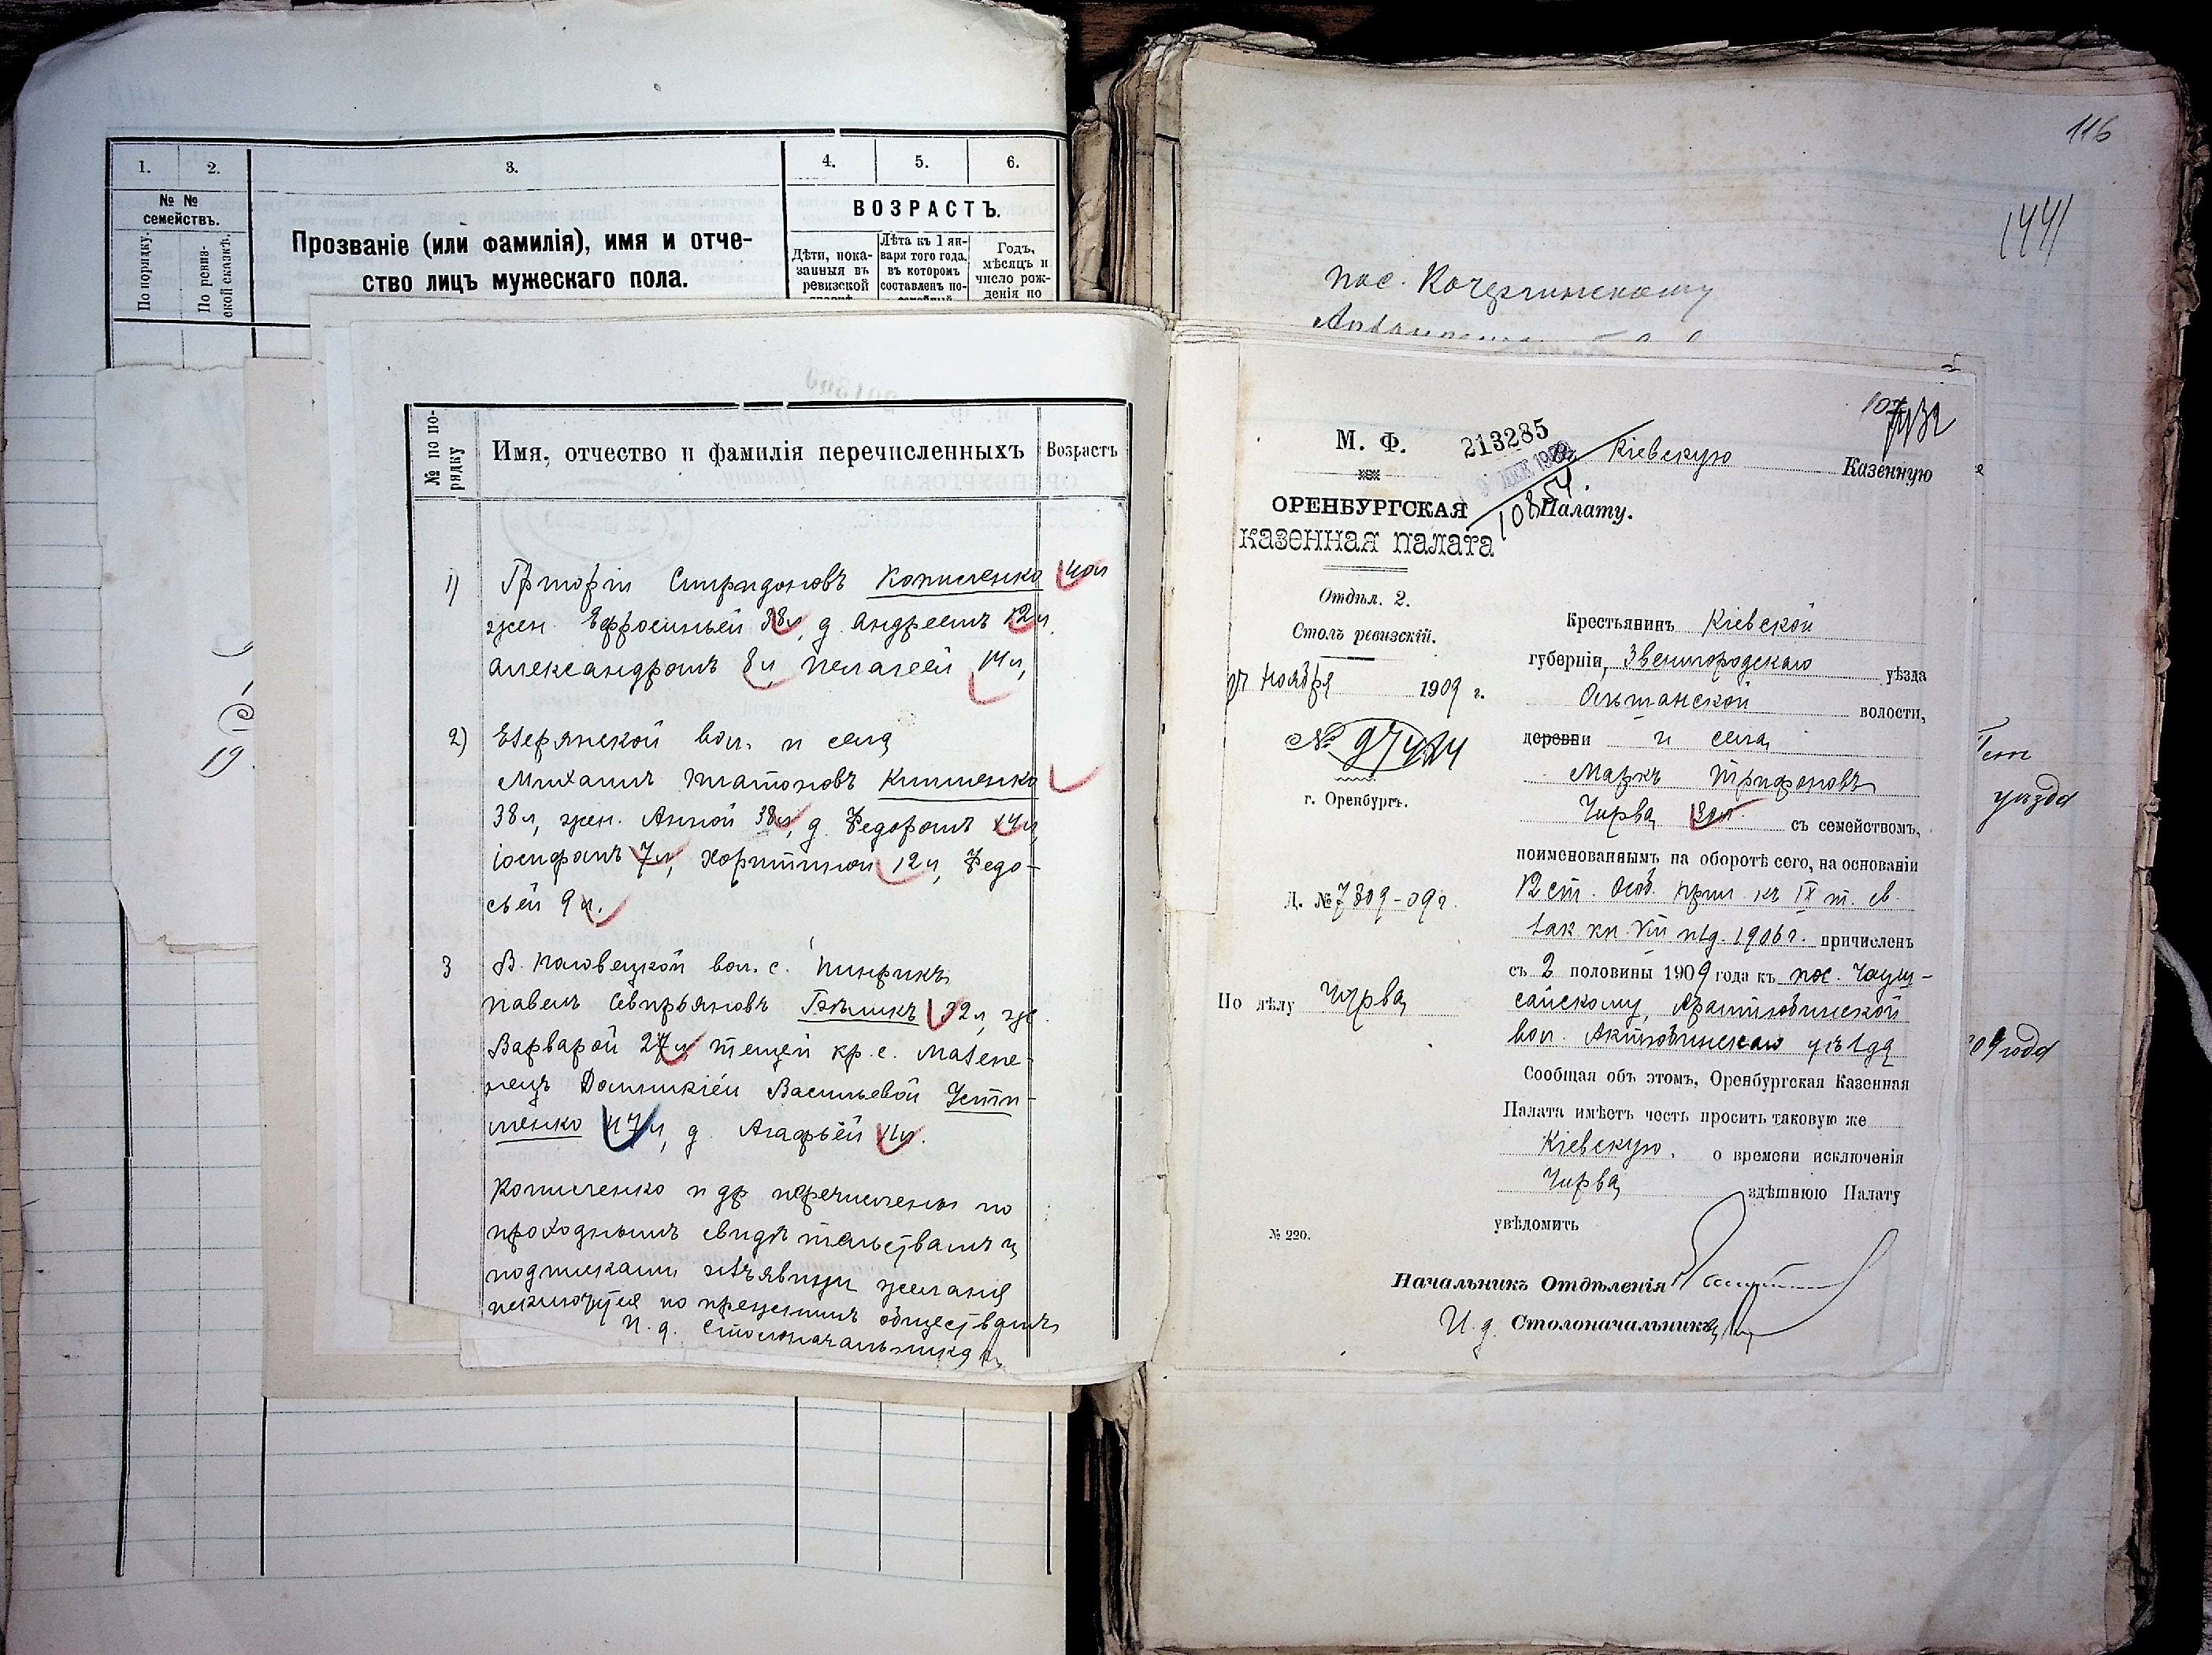 1. 2. 3. 4. 5. 6.
№ №
семействъ.
По порядку.
По ревиз-
ской сказкѣ.
Прозваніе (или фамилія), имя и отче-
ство лицъ мужескаго пола.
ВОЗРАСТЪ.
Дѣти, пока-
занныя въ
ревизской
Лѣта къ 1 ян-
варя того года,
въ которомъ
составленъ по-
Годъ,
мѣсяцъ и
число рож-
денія по
19
№ по по-
рядку
Имя, отчество и фамилія перечисленныхъ
Возрастъ
1) Григорій Спиридоновъ Кописченко 40л
жен. Ефросиньей 38л, д. Андреемъ 12л,
Александромъ 8л, Пелагеей 14л,
2) Езерянской вол. и села
Михаилъ Платоновъ Клименко
38л, жен. Анной 38л, д. Федоромъ 14л,
Іосифомъ 7л, Харитиной 12л, Федо-
сьей 9л.
3 В. Половецкой вол. с.
Павелъ Севирьяновъ 32л, же.
Варварой 27л тещей кр. с. Мазепе-
нецъ Домникіей Васильевой Усти-
менко 47л, д. Агафьей 11л.
Кописченко и др перечислены по
проходнымъ свидѣтельствамъ и
подписками изъявили желаніе
по прежнимъ обществамъ
И. д. Столоначальника
116
1441
пос. Кочергинскому
уѣзда
209 года
М. Ф.
213285
10854.
Кіевскую Казенную
Палату.
ОРЕНБУРГСКАЯ
КАЗЕННАЯ ПАЛАТА
Отдѣл. 2.
Столъ ревизскій.
Ноября 1909 г.
№ 97424
г. Оренбургъ.
Д. № 7309-09г.
По дѣлу Чирва
№ 220.
Крестьянинъ Кіевской
губерніи, Звенигородскаго уѣзда
Ольшанской волости,
деревни и села
Маркъ Трифоновъ
Чирва 30л. съ семействомъ,
поименованнымъ на оборотѣ сего, на основаніи
12 ст. Особ. прил. къ IX т. св.
зак. кн. VIII изд. 1906 г. причисленъ
съ 2 половины 1909 года къ пос. Чаущ-
сайскому, Аралтюбинской
вол. Актюбинскаго уѣзда
Сообщая объ этомъ, Оренбургская Казенная
Палата имѣетъ честь просить таковую же
Кіевскую. о времени исключенія
Чирва здѣшнюю Палату
увѣдомить
Начальникъ Отдѣленія
И. д. Столоначальника